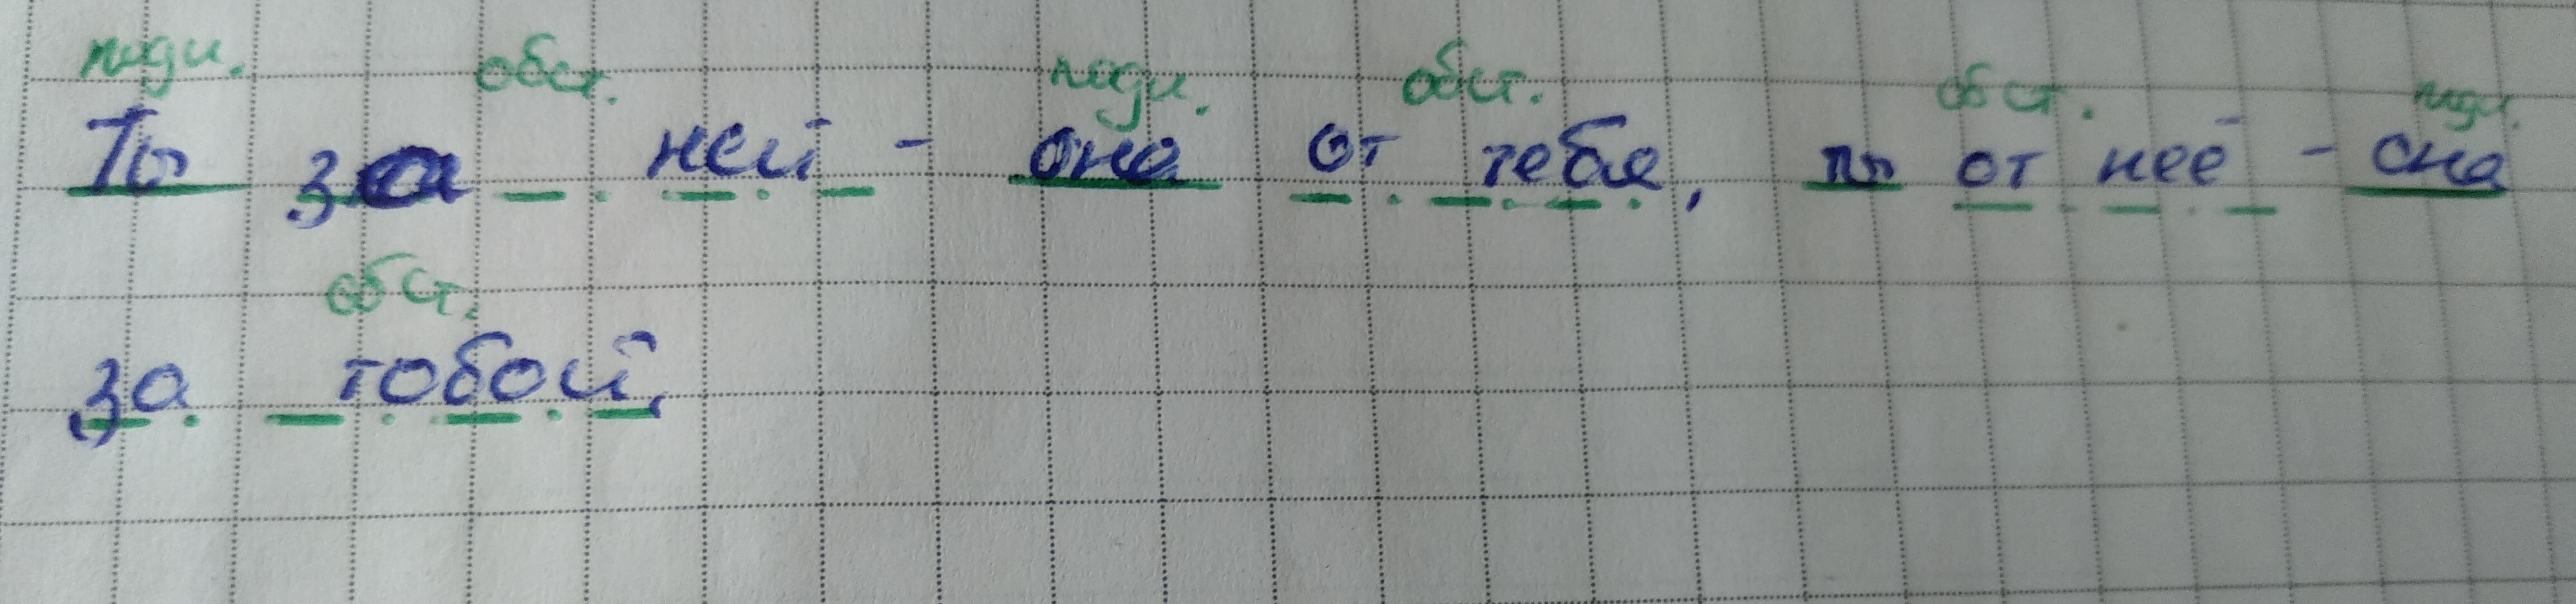 подл. обст. подл. обст. обст. подл.
Ты за ней - она от тебя, ты от неё - она
обст.
за тобой.